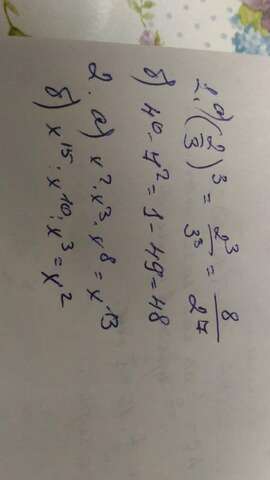 1. а) (2/3)³ = 2³/3³ = 8/27
б) 7⁰ - 7² = 1 - 49 = 48
2. а) x² · x³ · x⁸ = x¹³
б) x¹⁵ : x¹⁰ : x³ = x²